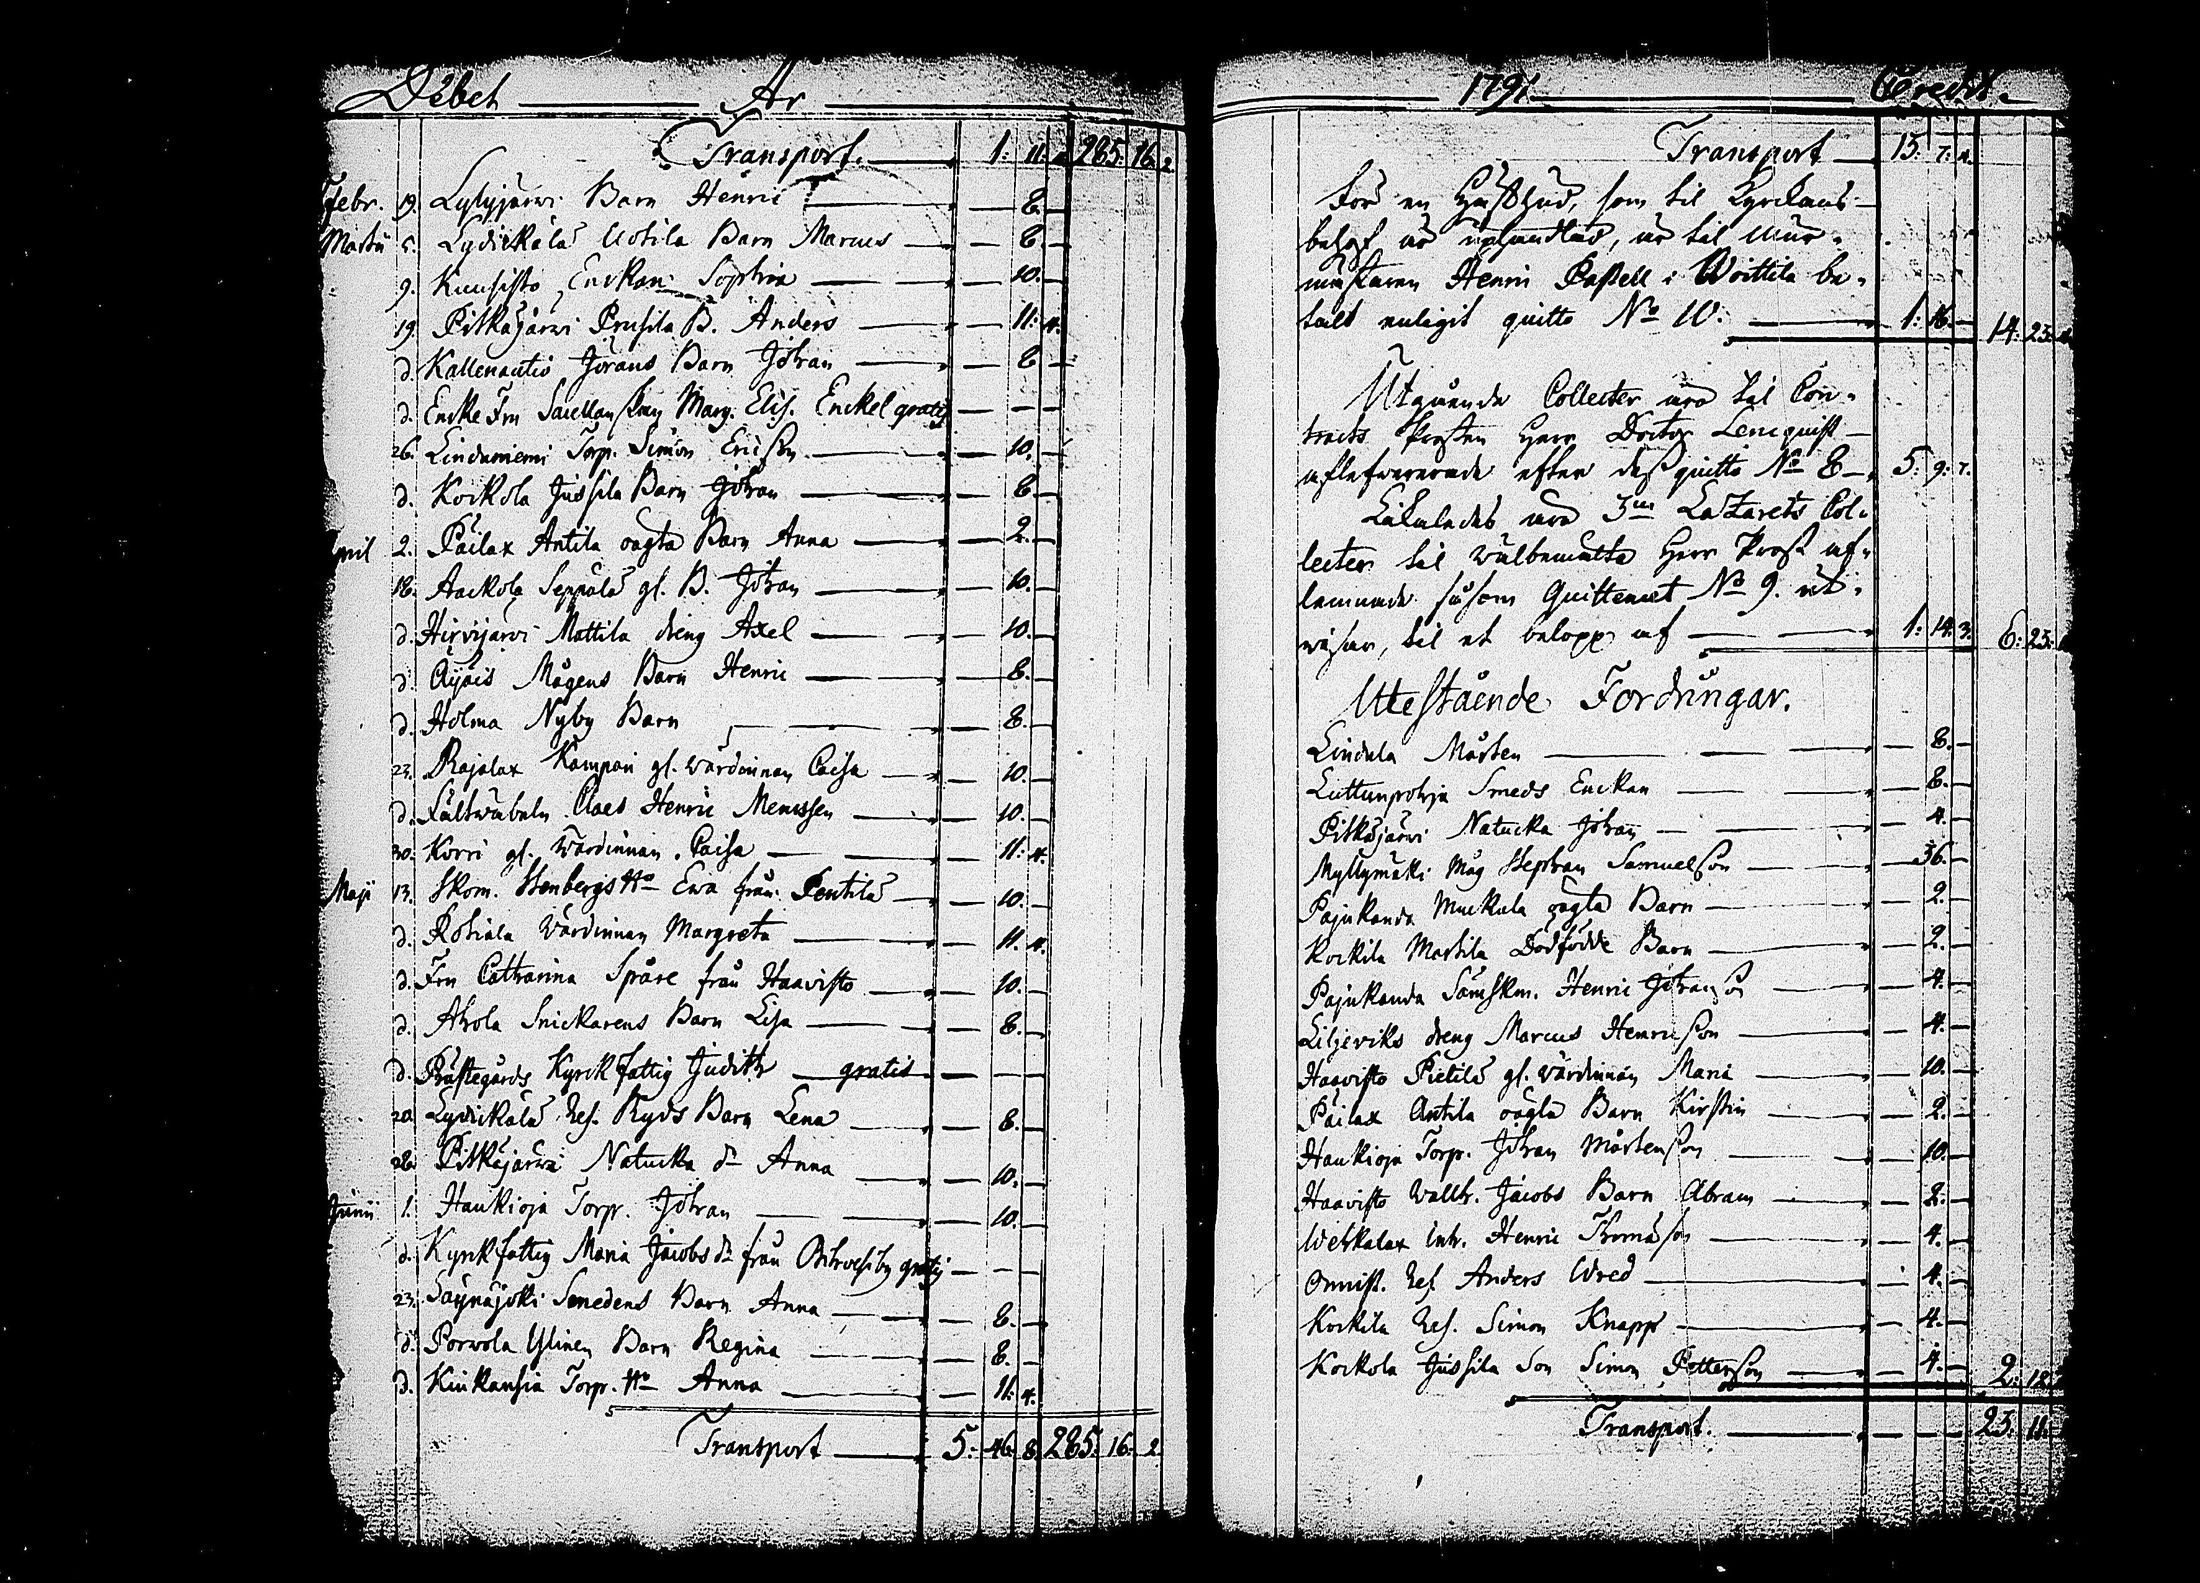 Debet År
Transport. 1: 11: 4. 285: 16. 2.
Febr. 19. Lylyjärvi Barn Henric 8.
Martii 5. Lydickälä Uotila Barn Marcus 8.
9. Kuusisto Enckan Sophia 10.
19. Pitkäjärvi Prusila B. Anders 11: 4.
d. Kallenautio Jörans Barn Johan 8
d. Encke Fru Sacellanskan Marg. Elis. Enckel gratis
26. Linduniemi Torp. Simon Ericson 10.
d. Kockola Jussila Barn Johan 8.
April 2. Päilax Antila oägta Barn Anna 2.
18. Aackola Seppälä gl. B. Johan 10.
d. Hirvijärvi Mattila dreng Axel 10.
d. Äyräis Mågens Barn Henric 8.
d. Holma Nyby Barn 8.
23. Rajalax Kämpari gl. wärdinnan Caisa 10.
d. Fältwäbeln Claes Henric 10.
30. Korri gl. Wärdinnan Caisa 11: 4.
Maji 13. Skom. Stenbergs Ho Ewa från Pentilä 10.
d. Rohiala Wärdinnan Margreta 11. 4.
d. Fru Catharina Spåre från Haavisto 10.
d. Ahola Snickarens Barn Lisa 8.
d. Prästegårds Kyrckfattig Judith gratis
20. Lydickälä Ref. Ryds Barn Lena 8.
28. Pitkäjärvi Natucka dr Anna 10.
Junii 1. Haukioja Torp. Johan 10.
d. Kyrckfattig Maria Jacobs dr från gratis
23. Säynäjoki Smedens Barn Anna 8.
d. Porvola Ylinen Barn Regina 8.
d. Kiukansia Torp. Ho Anna 11: 4.
Transport 5: 46: 8. 285: 16: 2.
1791 Credit.
Transport 15: 7: 4.
För en Hästhud, som til Kyrckans
behof är uphandlad, är til Mur-
mästaren Henric Pastell i Woittila be-
talt enligit quitto No 10. 1: 16. 14: 23:
Utgående Collecter äro til Con-
tracts Prosten Herr Doctor Lencquist
aflefwererade efter dess quitto No 8 5: 9: 7.
Likaledes äro 3ne Lazarets Col-
lecter til wälbemälte Herr Prost af-
lemnade såsom Quittencet No 9. ut-
wisar, til et belopp af 1: 14: 3. 6: 23:
Utestående Fordringar.
Lindala Mårten 8.
Luttunpohja Smeds Enckan 8.
Pitkäjärvi Natucka Johan 4.
Myllymäki Måg Stephan Samuelson 36.
Pajukanda Muckala oägta Barn 2.
Kockila Martila Dödfödde Barn 2.
Pajukanda Sämskm. Henric Johanson 4.
Liljeviks dreng Marcus Henricson 4.
Haavisto Pietilä gl. Wärdinnan Maria 10.
Päilax Antila oägta Barn Kirstin 2.
Haukioja Torp. Johan Mårtenson 10.
Haavisto Walltr. Jacobs Barn Abram 8.
Wehkalax Inh. Henric Thomason 4.
Onnist. Ref. Anders Wred 4.
Kockila Ref. Simon Knapp 4.
Kockola Jussila Son Simon Petterson 4. 2: 18.
Transport. 23: 11.